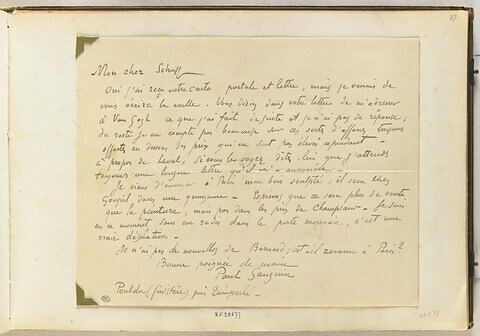 27
Mon cher Schuff
Oui j'ai reçu votre carte postale et lettre, mais je venais de
vous écrire la veille. Vous disiez dans votre lettre de m'adresser
à Van Gogh ce que j'ai fait de suite et je n'ai pas de réponse ;
du reste je ne compte pas beaucoup sur ces sortes d'affaires toujours
offertes en dessous des prix qui ne sont pas élevés cependant —
à propos de Laval, si vous le voyez dites lui que j'attends
toujours une longue lettre qu'il m'a annoncée —
Je viens d'envoyer à Paris mon bois sculpté ; il sera chez
Goupil dans une quinzaine — Espérons que ce sera plus de vente
que la peinture, mais pas dans les prix de Champsaur — Je suis
en ce moment sans un radis dans le porte monnaie, c'est une
vraie désolation —
Je n'ai pas de nouvelles de Bernard ; est-il revenu à Paris ?
Bonne poignée de main
Paul Gauguin
Pouldu (finistère) près Quimperlé —
R.F. 28877
28877